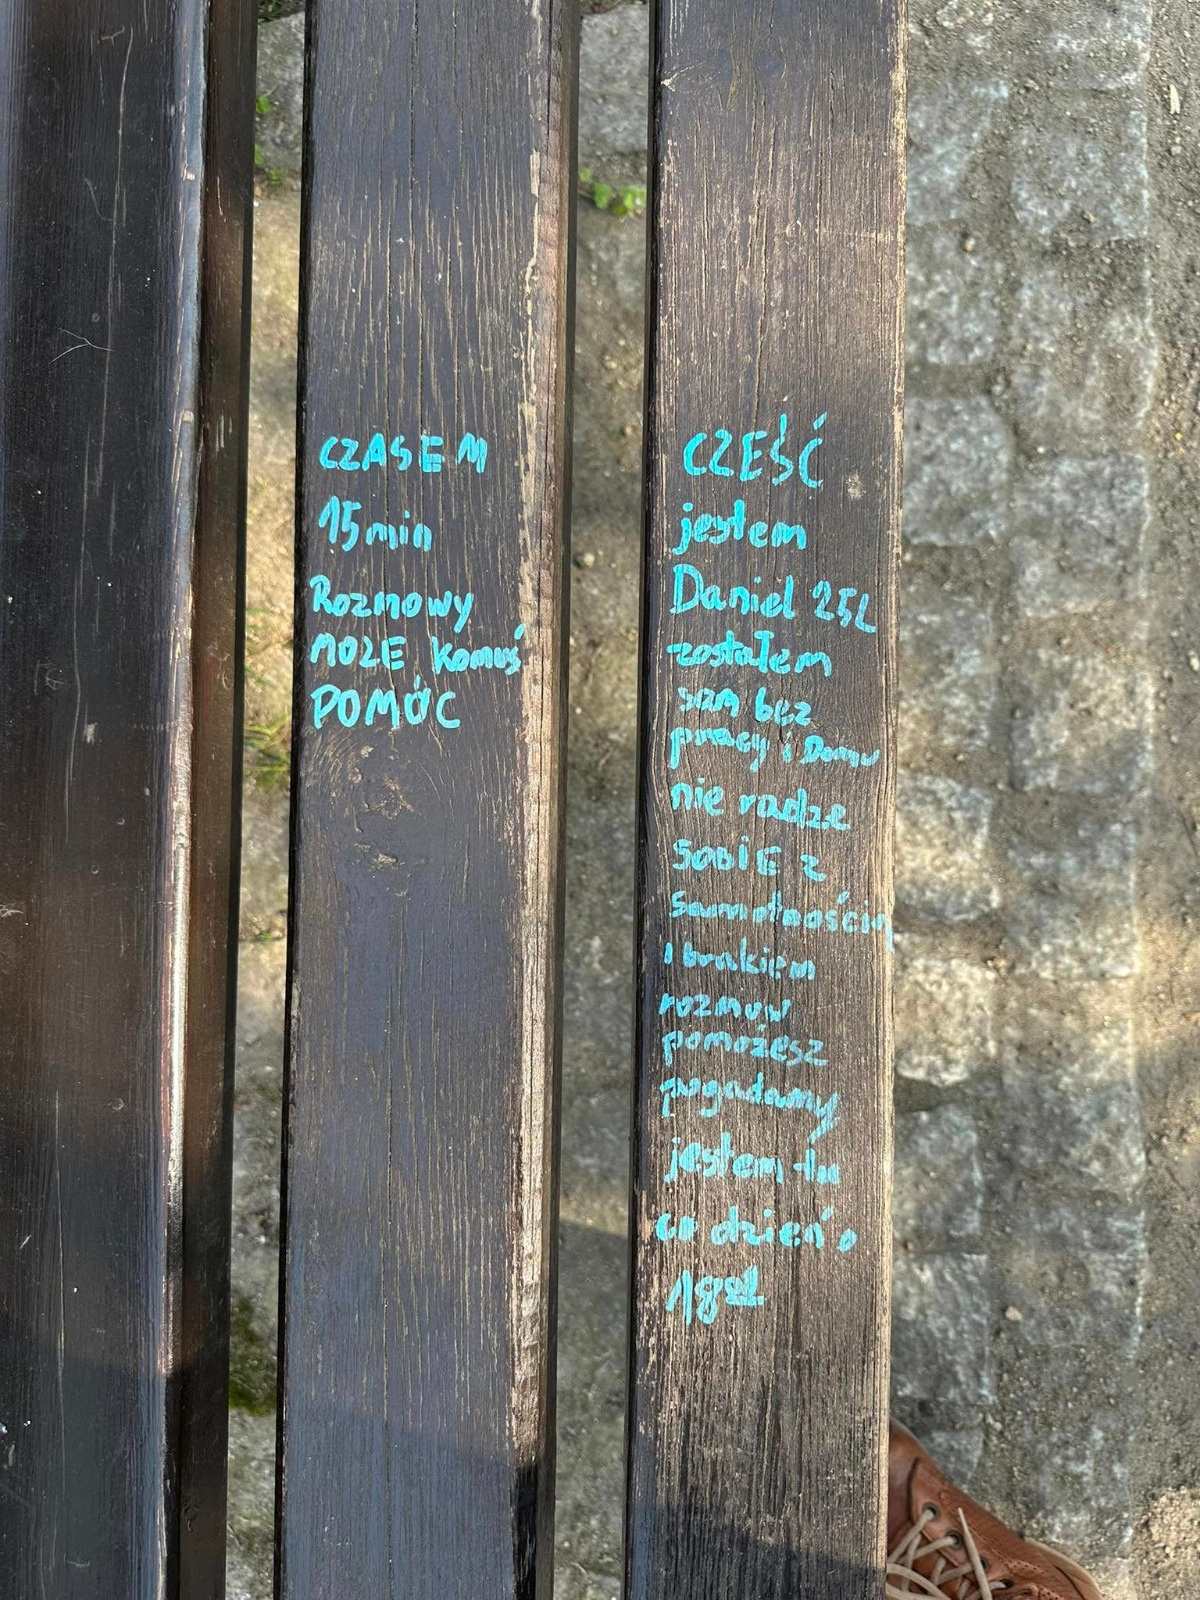 CZASEM
15min
Rozmowy
MOZE komuś
POMÓC
CZEŚĆ
jestem
Daniel 25L
zostałem
sam bez
pracy i Domu
nie radze
SOBIE z
samotnością
I brakiem
rozmów
pomożesz
pogadamy
jestem tu
co dzień o
18⁰⁰